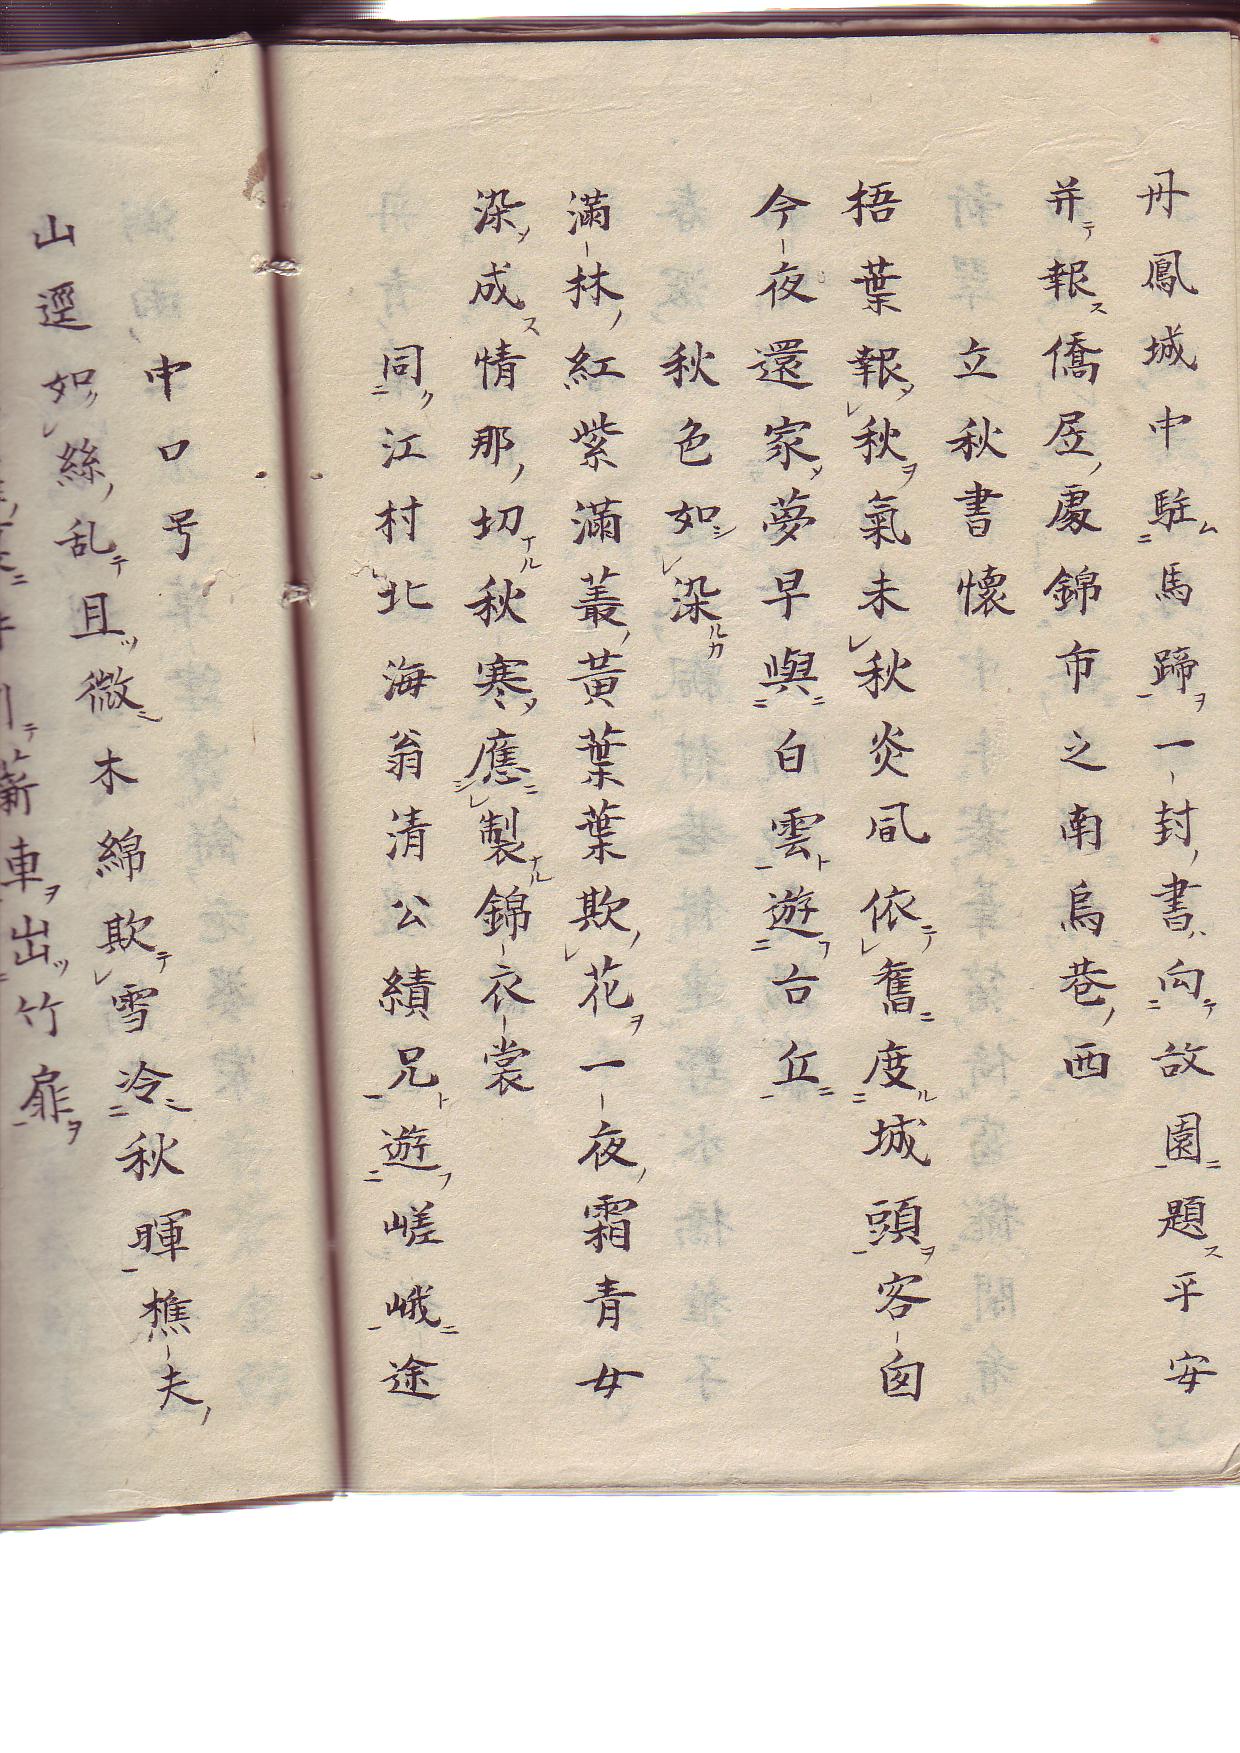 丹鳳城中駐馬蹄一封書向故園題平安
并報僑居處錦市之南烏巷西
立秋書懷
梧葉報秋氣未秋炎風依舊度城頭客囱
今夜還家夢早與白雲遊台丘
秋色如染
滿林紅紫滿叢黃葉葉欺花一夜霜青女
染成情那切秋寒應製錦衣裳
同江村北海翁清公績兄遊嵯峨途
中口号
山逕如絲乱且微木綿欺雪冷秋暉樵夫
車出竹扉